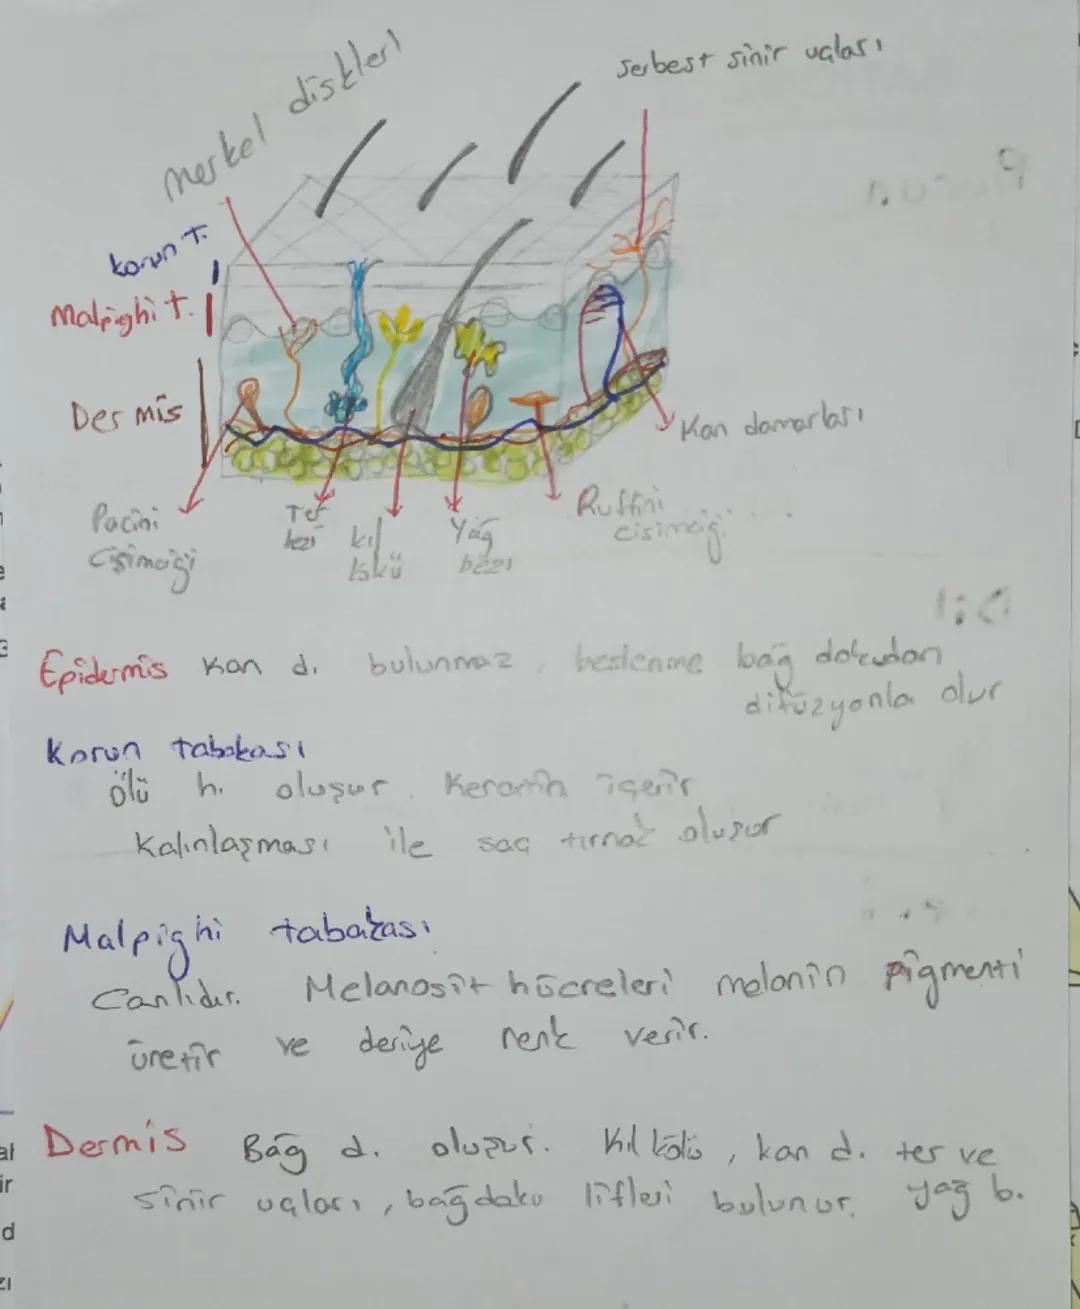 merkel diskleri
serbest sinir uçları
korun t.
Malpighi t.
Dermis
Kan damarları
Pacini
cisimciği
Ter
bezi
kıl
kökü
Yağ
bezi
Ruffini
cisimciği
Epidermis kan d. bulunmaz, beslenme bağ dokudan
difüzyonla olur
Korun tabakası
ölü h. oluşur. Keratin içerir
Kalınlaşması ile saç tırnak oluşur
Malpighi tabakası
Canlıdır. Melanosit hücreleri melanin pigmenti
üretir ve deriye renk verir.
Dermis Bağ d. oluşur. Kıl kökü, kan d. ter ve
sinir uçları, bağ doku lifleri bulunur. yağ b.